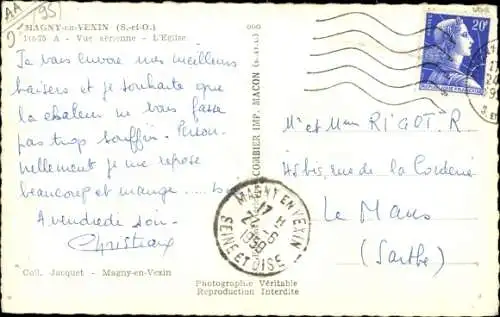 AA
95
MAGNY-en-VEXIN (S.-et-O.)
A - Vue aérienne - L'Eglise
Je vous envoie mes meilleurs
baisers et je souhaite que
la chaleur ne vous fasse
pas trop souffrir. Person-
nellement je me repose
beaucoup et mange
A vendredi soir
Christiane
Coll. Jacquet - Magny-en-Vexin
CORBIER IMP. MACON
Photographie Véritable
Reproduction Interdite
MAGNY EN VEXIN
17 H
1958
SEINE ET OISE
20F
M. et Mme RIGOT. R
48 bis, rue de la
Le Mans
(Sarthe)